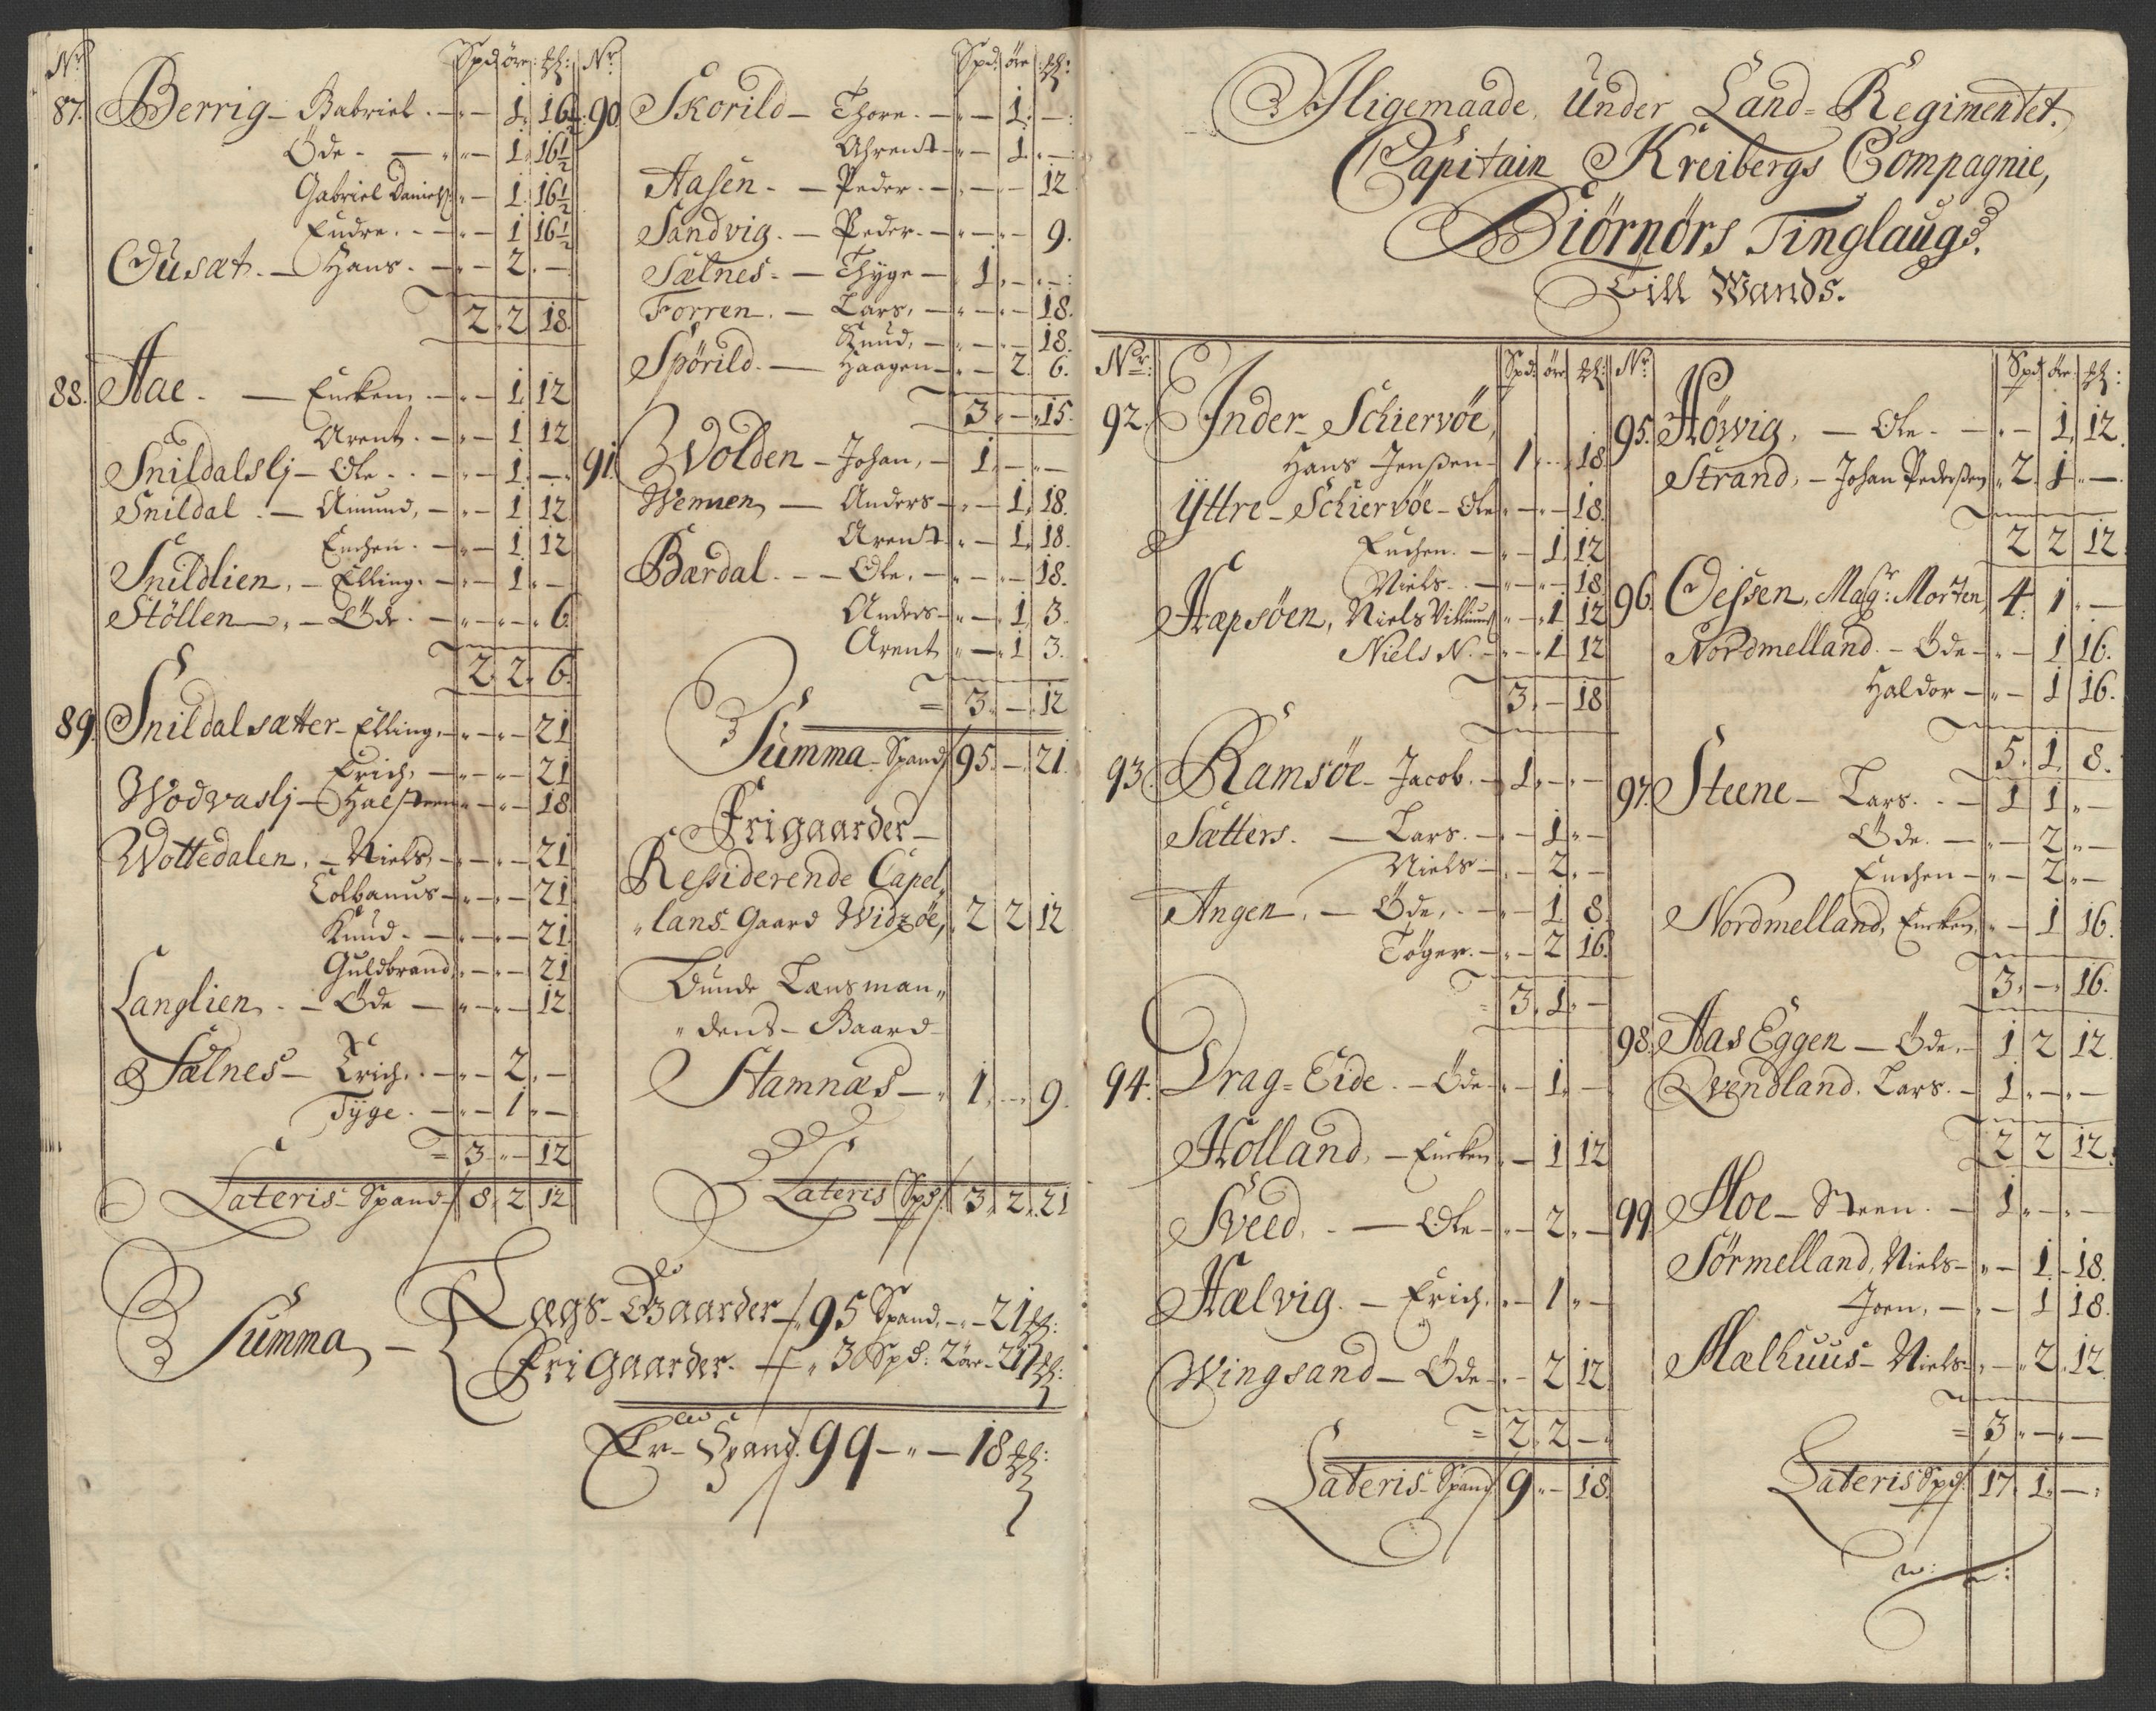 Nr. Spd öre ℔:
87. Berrig - Gabriel. - „ - 1. 16½
Öde - - „ - 1. 16½
Gabriel Daniels: „ - 1. 16½
Endre. - „ - 1 16½
Hans. - „ - 2. -
2. 2. 18.
88. Aae. - - „ - 1. 12
Arent. - „ - 1 12
Snildalslj - Ole. - „ - 1. -
Snildal. - Amund, - „ - 1 12
Enchen. - „ - 1. 12
Snildlien, - Elling. - „ - 1 „ -
Stöllen, - Öde. - „ - „ - 6
2. 2. 6.
89. Snildalsætter - Elling, - „ - „ - 21
Erich, - „ - „ - 21
Wodvaslj - Halsteen „ - „ - 18
Wottedalen, - Niels, - „ - „ - 21
Colbanus - „ - „ - 21
Knud. - „ - „ - 21
Guldbrand, „ - „ - 21
Langlien. - Öde - „ - „ - 12.
Sælnes - Erich. - „ - 2. -
Tyge. - „ - 1 „ -
= 3 - „ - 12
Lateris - Spand 8. 2 12
Nr. Spd: öre: ℔:
90 Skorild - Thore. - „ - 1. -
Ahrent - „ - 1. -
Aasen. - Peder. - „ - „ - 12
Sandvig. - Peder. - „ - „ - 9.
Sælnes. - Thyge - 1. - „ -
Forren. - Lars, - „ - „ - 18.
Knud, - „ - „ - 18.
Spörild. - Haagen - „ - 2. 6.
3. - „ 15.
91. Wolden - Johan, - 1. - „ -
Wennen, - Anders - „ - 1. 18.
Arent. „ - 1. 18.
Bærdal. - - Ole. - „ - „ - 18.
Anders - „ - 1. 3.
Arent „ - „ 1 3.
= 3. - „ 12
Summa - Spand 95. - „ 21.
Frigaarder -
Ressiderende Capel„
„lans Gaard Widzöe, 2 2 12
Lænsman„
„dens - Gaard
Stamnæs - „ 1. - „ 9.
Lateris Spd 3. 2. 21
Summa, - Lægs - Gaarder - 95 Spand, - „ - 21 ℔:
Fri Gaarder. - „ 3 Spd: 2 öre - 21 ℔:
Er - Spand. 99 - „ - 18 ℔:
Iligemaade, Under Land = Regimentet.
Capitain Kreibergs Compagnie,
Biörnörs Tinglaug.
Till Wands.
Nr. Spd: öre ℔:
92. Inder - Schiervöe,
Hans Jenssen - 1. - „ 18.
Yttre - Schiervöe - Ole „ - „ - 18.
Enchen. - „ - 1. 12
Niels. - „ - „ - 18.
Hæpsöen, Niels Villumss „ - „ 1 12
Niels N. - „ - „ 1. 12
3. - 18
93. Ramsöe - Jacob. - 1. - „ -
Sætters. - Lars. - „ - 1 „ -
Niels - „ - 2. -
Angen. - Öde, - „ - 1. 8.
Töger. - „ - 2 16.
= 3. 1. -
94. Drag = Eide. - Öde - „ - 1. -
Holland, - Enken „ - 1 12
Sveed. - Ole - „ - 2. -
Hælvig. - Erich. - „ - 1 „ -
Wingsand - Öde - „ - 2 12
= 2. 2 - „
Lateris - Spand 9 „ - 18.
Nr. Spd öre ℔:
95. Hövvig, - Ole. - „ - 1. 12.
Strand, - Johan Pederssen „ 2. 1 „ -
2 2 12
96. Oessen, Magr: Morten, 4. 1 „ -
Nordmelland. - Öde - „ - 1 16.
Haldor - „ - 1 16.
5. 1. 8.
97. Steene - Lars. - 1 1 „ -
Öde. - „ - 2 „ -
Enchen - „ - 2 „ -
Nordmelland, Enken, „ - 1 16.
3. - „ 16.
98. Aas Eggen - Öde. - 1 2 12.
Qvendland. Lars. - 1. - „ -
2 2 12.
99. Moe - Steen. - 1. - „ -
Sörmelland, Niels - „ - 1. 18.
Joen, - „ - 1 18.
Mælhuus - Niels - „ - 2. 12
= 3 „ - „ -
Lateris Spd 17. 1. -